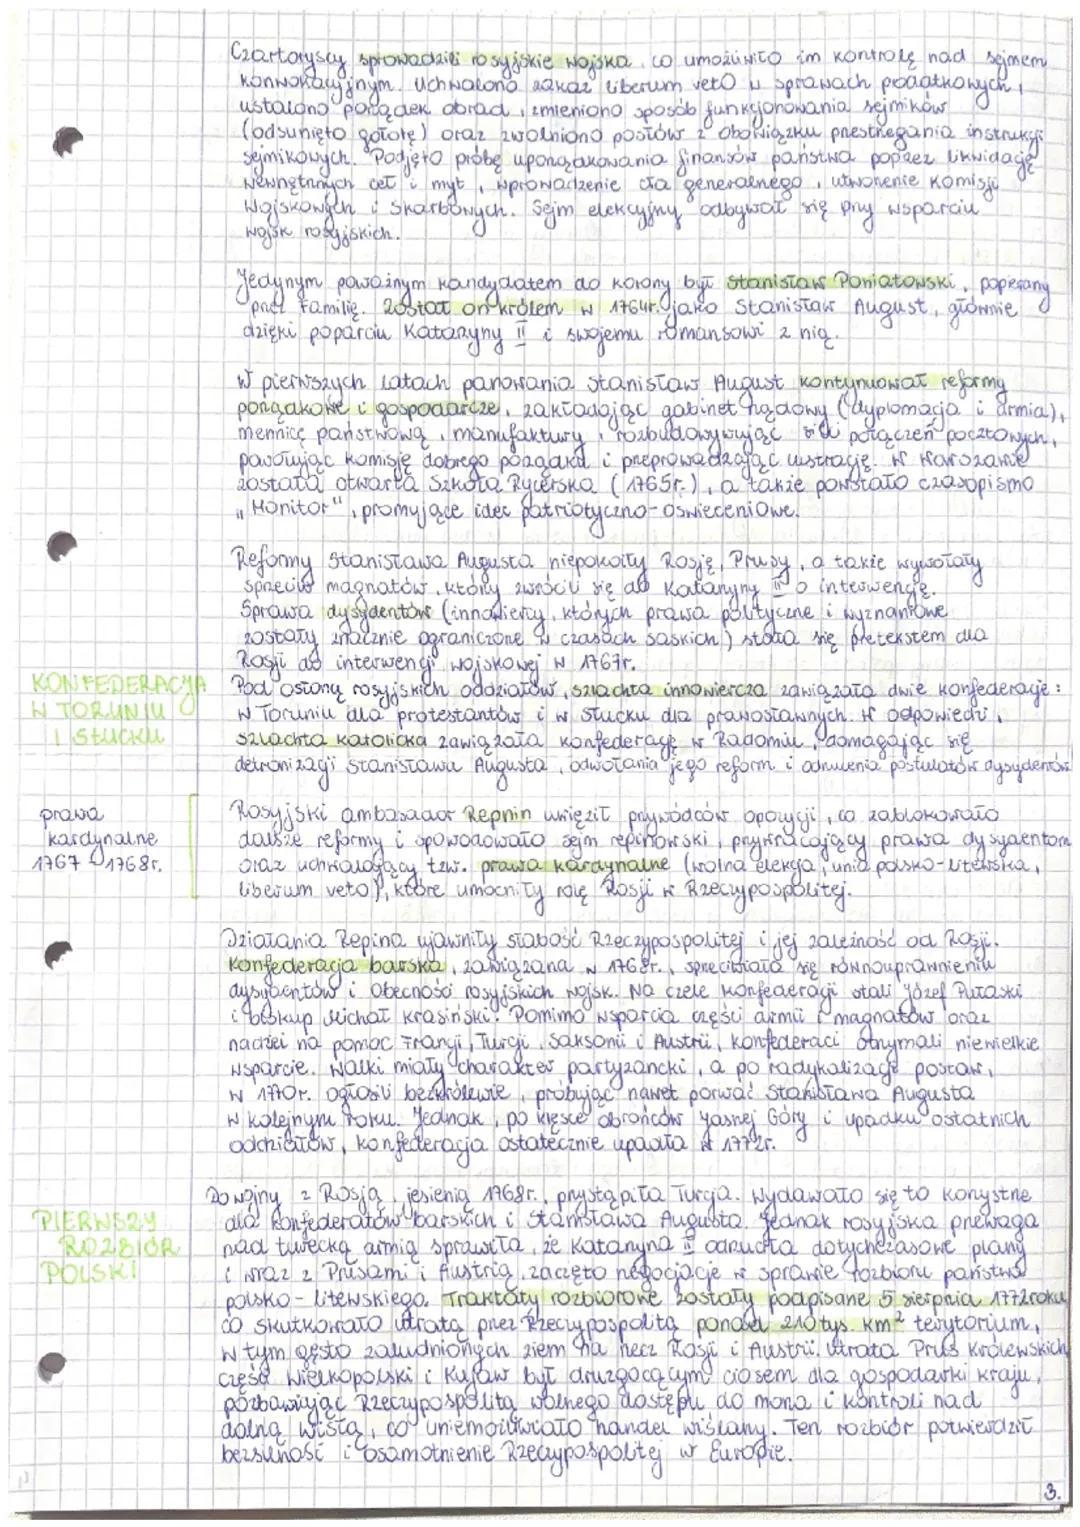 Czartoryscy sprowadzili rosyjskie wojska, co umożliwiło im kontrolę nad sejmem
konwokacyjnym. Uchwalono zakaz liberum veto w sprawach podatkowych,
ustalono porządek obrad, zmieniono sposób funkcjonowania sejmików
(odsunięto gołotę) oraz zwolniono posłów z obowiązku przestrzegania instrukcji
sejmikowych. Podjęto próbę uporządkowania finansów państwa poprzez likwidację
wewnętrznych ceł i myt, wprowadzenie cła generalnego, utworzenie Komisji
Wojskowych i Skarbowych. Sejm elekcyjny odbywał się przy wsparciu
wojsk rosyjskich.
Jedynym poważnym kandydatem do korony był Stanisław Poniatowski, popierany
przez Familię. Został on królem w 1764r. jako Stanisław August, głównie
dzięki poparciu Katarzyny II i swojemu romansowi z nią.
W pierwszych latach panowania Stanisław August kontynuował reformy
porządkowe i gospodarcze, zakładając gabinet rządowy (dyplomacja i armia),
mennicę państwową, manufaktury, rozbudowywując sieć połączeń pocztowych,
powołując komisję dobrego porządku i przeprowadzając lustrację. W Warszawie
została otwarta Szkoła Rycerska (1765r.), a także powstało czasopismo
„Monitor", promujące idee patriotyczno-oświeceniowe.
Reformy Stanisława Augusta niepokoiły Rosję, Prusy, a także wywołały
sprzeciw magnatów, który zwrócił się do Katarzyny II o interwencję.
Sprawa dysydentów (innowiercy, których prawa polityczne i wyznaniowe
zostały znacznie ograniczone w czasach saskich) stała się pretekstem dla
Rosji do interwencji wojskowej w 1767r.
KONFEDERACJA
W TORUNIU
I SŁUCKU
Pod osłoną rosyjskich oddziałów, szlachta innowiercza zawiązała dwie konfederacje:
w Toruniu dla protestantów i w Słucku dla prawosławnych. W odpowiedzi,
szlachta katolicka zawiązała konfederację w Radomiu, domagając się
detronizacji Stanisława Augusta, odwołania jego reform i odrzucenia postulatów dysydentów
prawa
kardynalne
1767 - 1768r.
Rosyjski ambasador Repnin uwięził przywódców opozycji, co zablokowało
dalsze reformy i spowodowało sejm repninowski, przywracający prawa dysydentom
oraz uchwalający tzw. prawa kardynalne (wolna elekcja, unia polsko-litewska,
liberum veto), które umocniły rolę Rosji w Rzeczypospolitej.
Działania Repina ujawniły słabość Rzeczypospolitej i jej zależność od Rosji.
Konfederacja barska, zawiązana w 1768r., sprzeciwiała się równouprawnieniu
dysydentów i obecności rosyjskich wojsk. Na czele konfederacji stali Józef Pułaski
i biskup Michał Krasiński. Pomimo wsparcia części armii i magnatów oraz
nadziei na pomoc Francji, Turcji, Saksonii i Austrii, konfederaci otrzymali niewielkie
wsparcie. Walki miały charakter partyzancki, a po radykalizacji postaw,
w 1770r. ogłosili bezkrólewie, próbując nawet porwać Stanisława Augusta
w kolejnym roku. Jednak, po klęsce obrońców Jasnej Góry i upadku ostatnich
oddziałów, konfederacja ostatecznie upadła w 1772r.
PIERWSZY
ROZBIÓR
POLSKI
Do wojny z Rosją, jesienią 1768r., przystąpiła Turcja. Wydawało się to korzystne
dla konfederatów barskich i Stanisława Augusta. Jednak rosyjska przewaga
nad turecką armią sprawiła, że Katarzyna II odrzuciła dotychczasowe plany
i wraz z Prusami i Austrią, zaczęto negocjacje w sprawie rozbioru państwa
polsko-litewskiego. Traktaty rozbiorowe zostały podpisane 5 sierpnia 1772 roku
co skutkowało utratą przez Rzeczypospolitą ponad 210 tys. km² terytorium,
w tym gęsto zaludnionych ziem na rzecz Rosji i Austrii. Utrata Prus Królewskich
część Wielkopolski i Kujaw był druzgocącym ciosem dla gospodarki kraju,
pozbawiając Rzeczypospolitą wolnego dostępu do morza i kontroli nad
dolną Wisłą, co uniemożliwiało handel wiślany. Ten rozbiór potwierdził
bezsilność i osamotnienie Rzeczypospolitej w Europie.
3.